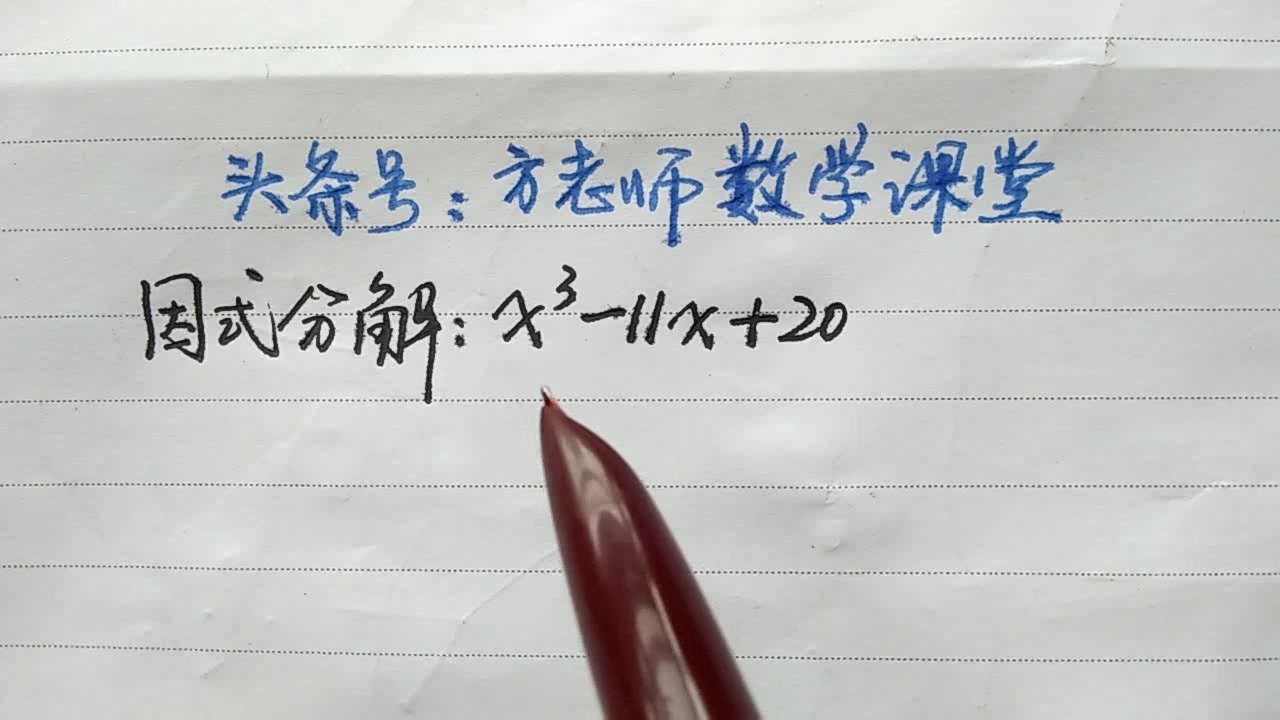 头条号：方老师数学课堂
因式分解：x³-11x+20